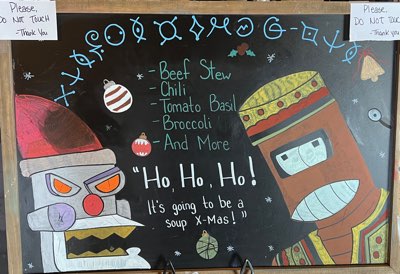 Please,
Do Not Touch
-Thank You
Please,
Do Not Touch
-Thank You
- Beef Stew
- Chili
- Tomato Basil
- Broccoli
- And More
"Ho, Ho, Ho!
It's going to be a
soup X-Mas!"